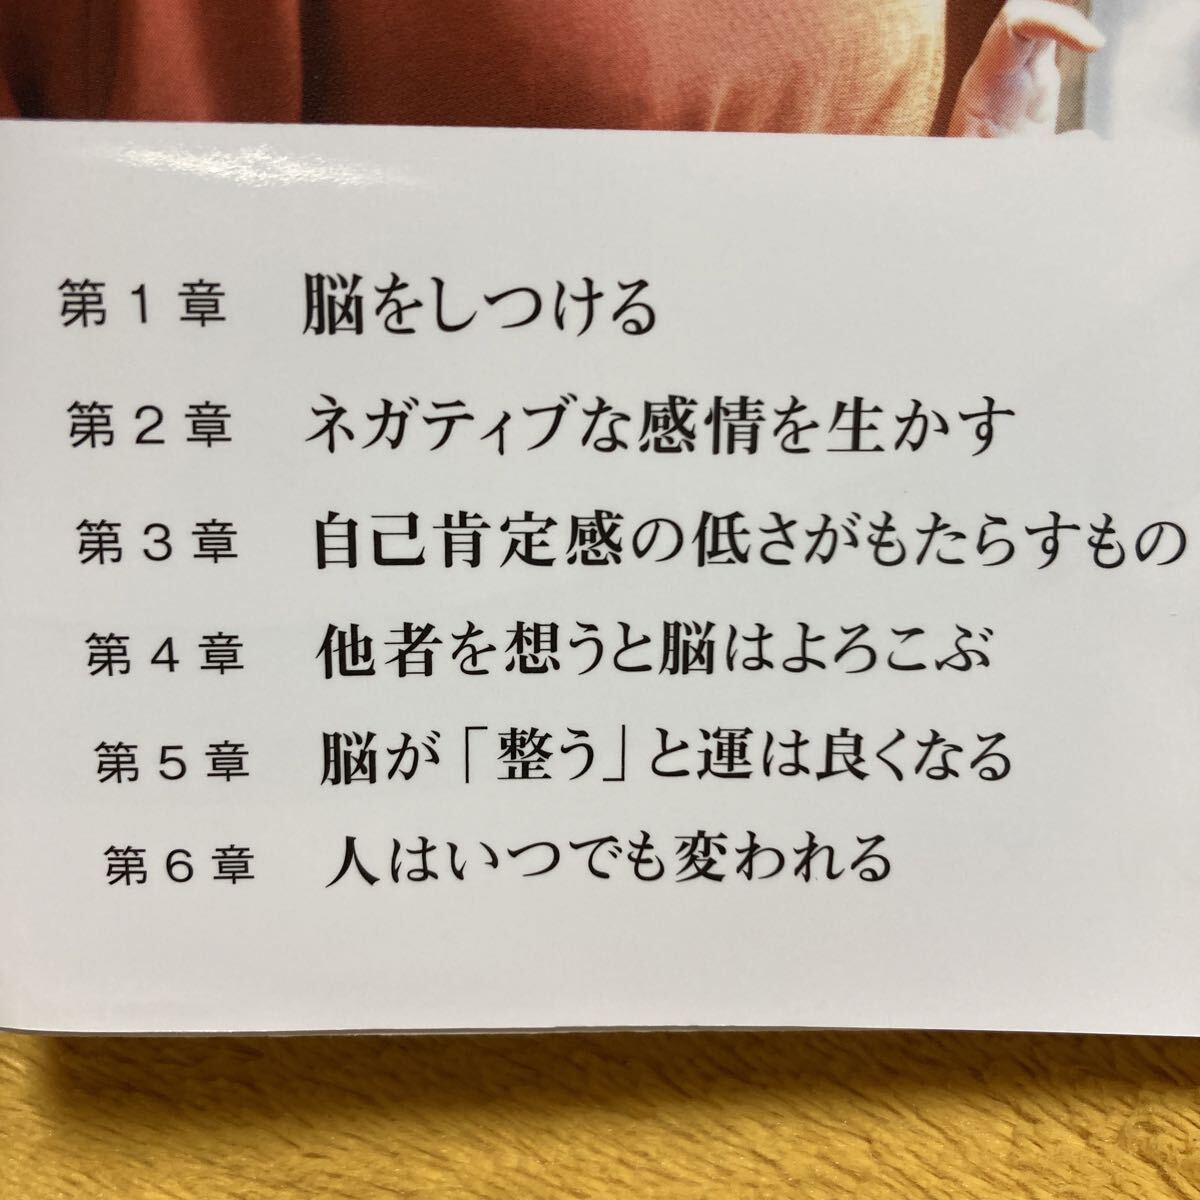 第1章 脳をしつける
第2章 ネガティブな感情を生かす
第3章 自己肯定感の低さがもたらすもの
第4章 他者を想うと脳はよろこぶ
第5章 脳が「整う」と運は良くなる
第6章 人はいつでも変われる